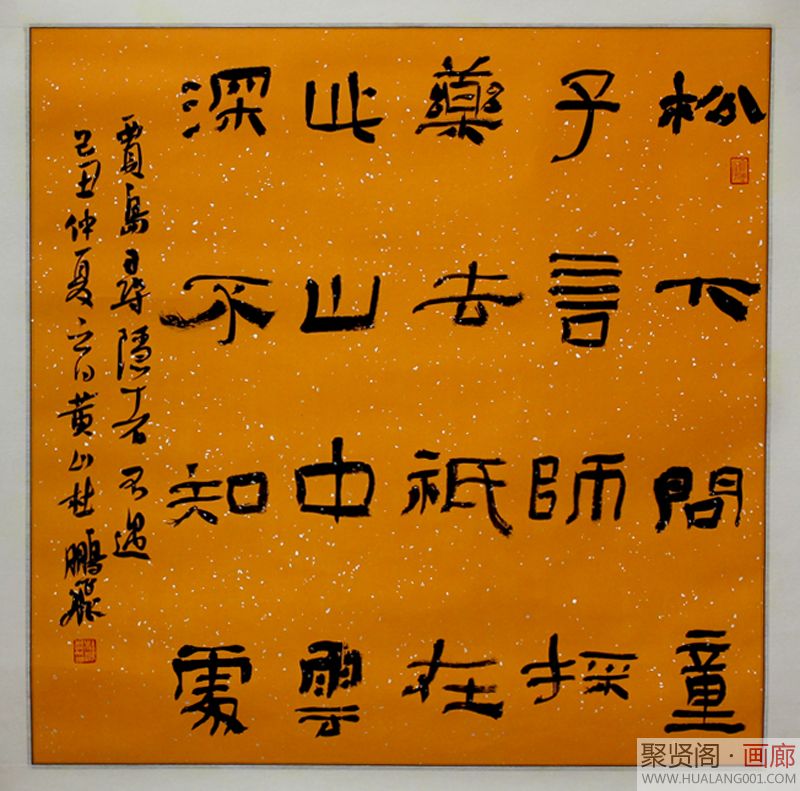 松下問童
子言師採
藥去祇在
此山中雲
深不知處
賈島尋隱者不遇
己丑仲夏之黄山杜鵬飛
聚贤阁·画廊
WWW.HUALANG001.COM